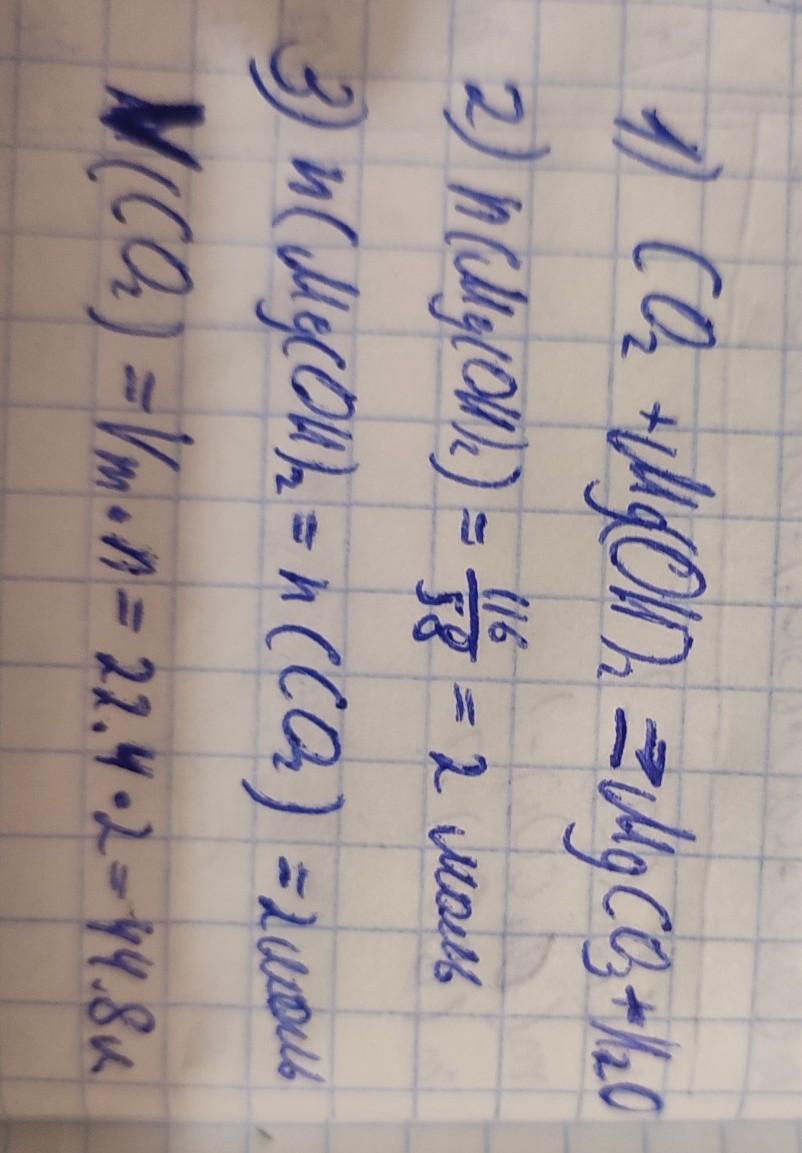 1) CO₂ + Mg(OH)₂ = MgCO₃ + H₂O
2) n(Mg(OH)₂) = 116/58 = 2 моль
3) n(Mg(OH)₂ = n(CO₂) = 2 моль
V(CO₂) = Vm · n = 22.4 · 2 = 44.8 л